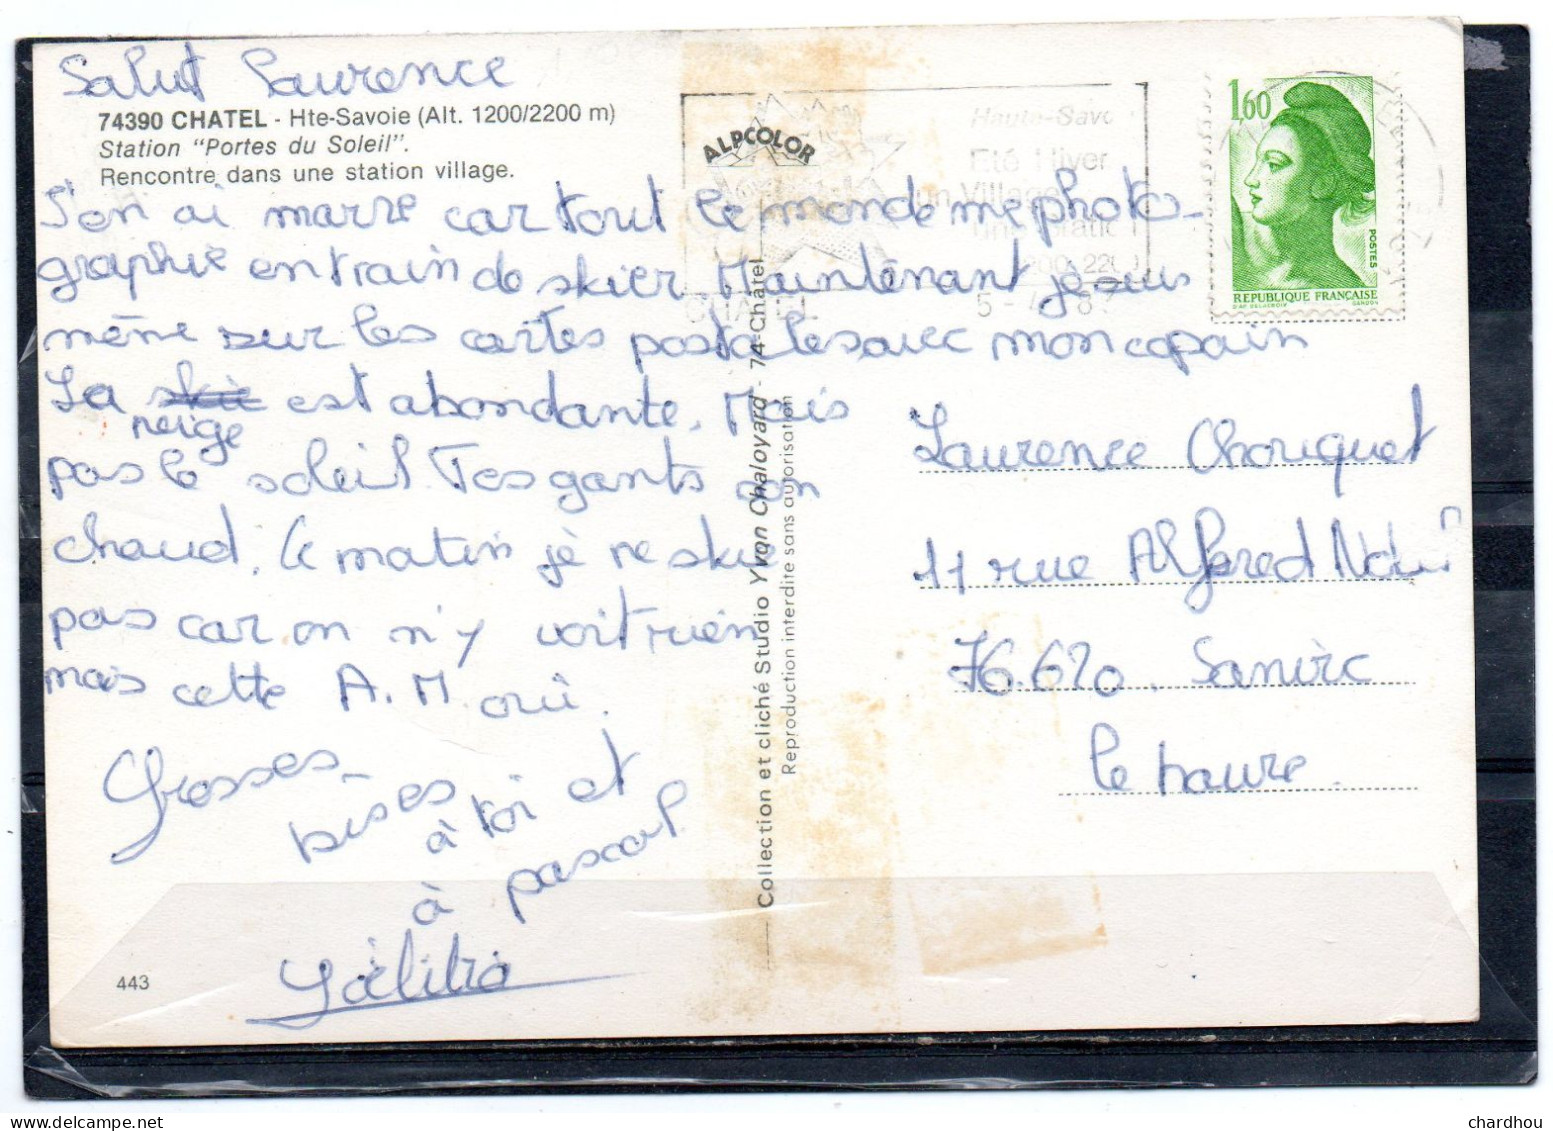 Salut Laurence
74390 CHATEL - Hte-Savoie (Alt. 1200/2200 m)
Station "Portes du Soleil".
Rencontre dans une station village.
J'en ai marre car tout le monde me photo-
graphie en train de skier Maintenant je suis
même sur les cartes postales avec mon copain
La skie est abondante. Mais
neige
pas le soleil Tes gants son
chaud. Le matin je ne skie
pas car on n'y voit rien
mais cette A.M. oui.
Grosses
bises
à toi et
à pascal
443
ALPCOLOR
Haute-Savo
Eté Hiver
un Village
une
200 220
CHATEL
5 - 87
1,60
POSTES
REPUBLIQUE FRANÇAISE
D'AP. DELACROIX GANDON
Collection et cliché Studio Yvan Chaloyard - 74-Châtel
Reproduction interdite sans autorisation
Laurence Chouquet
11 rue Alfred
76.620. Sanvic
le havre.
chardhou